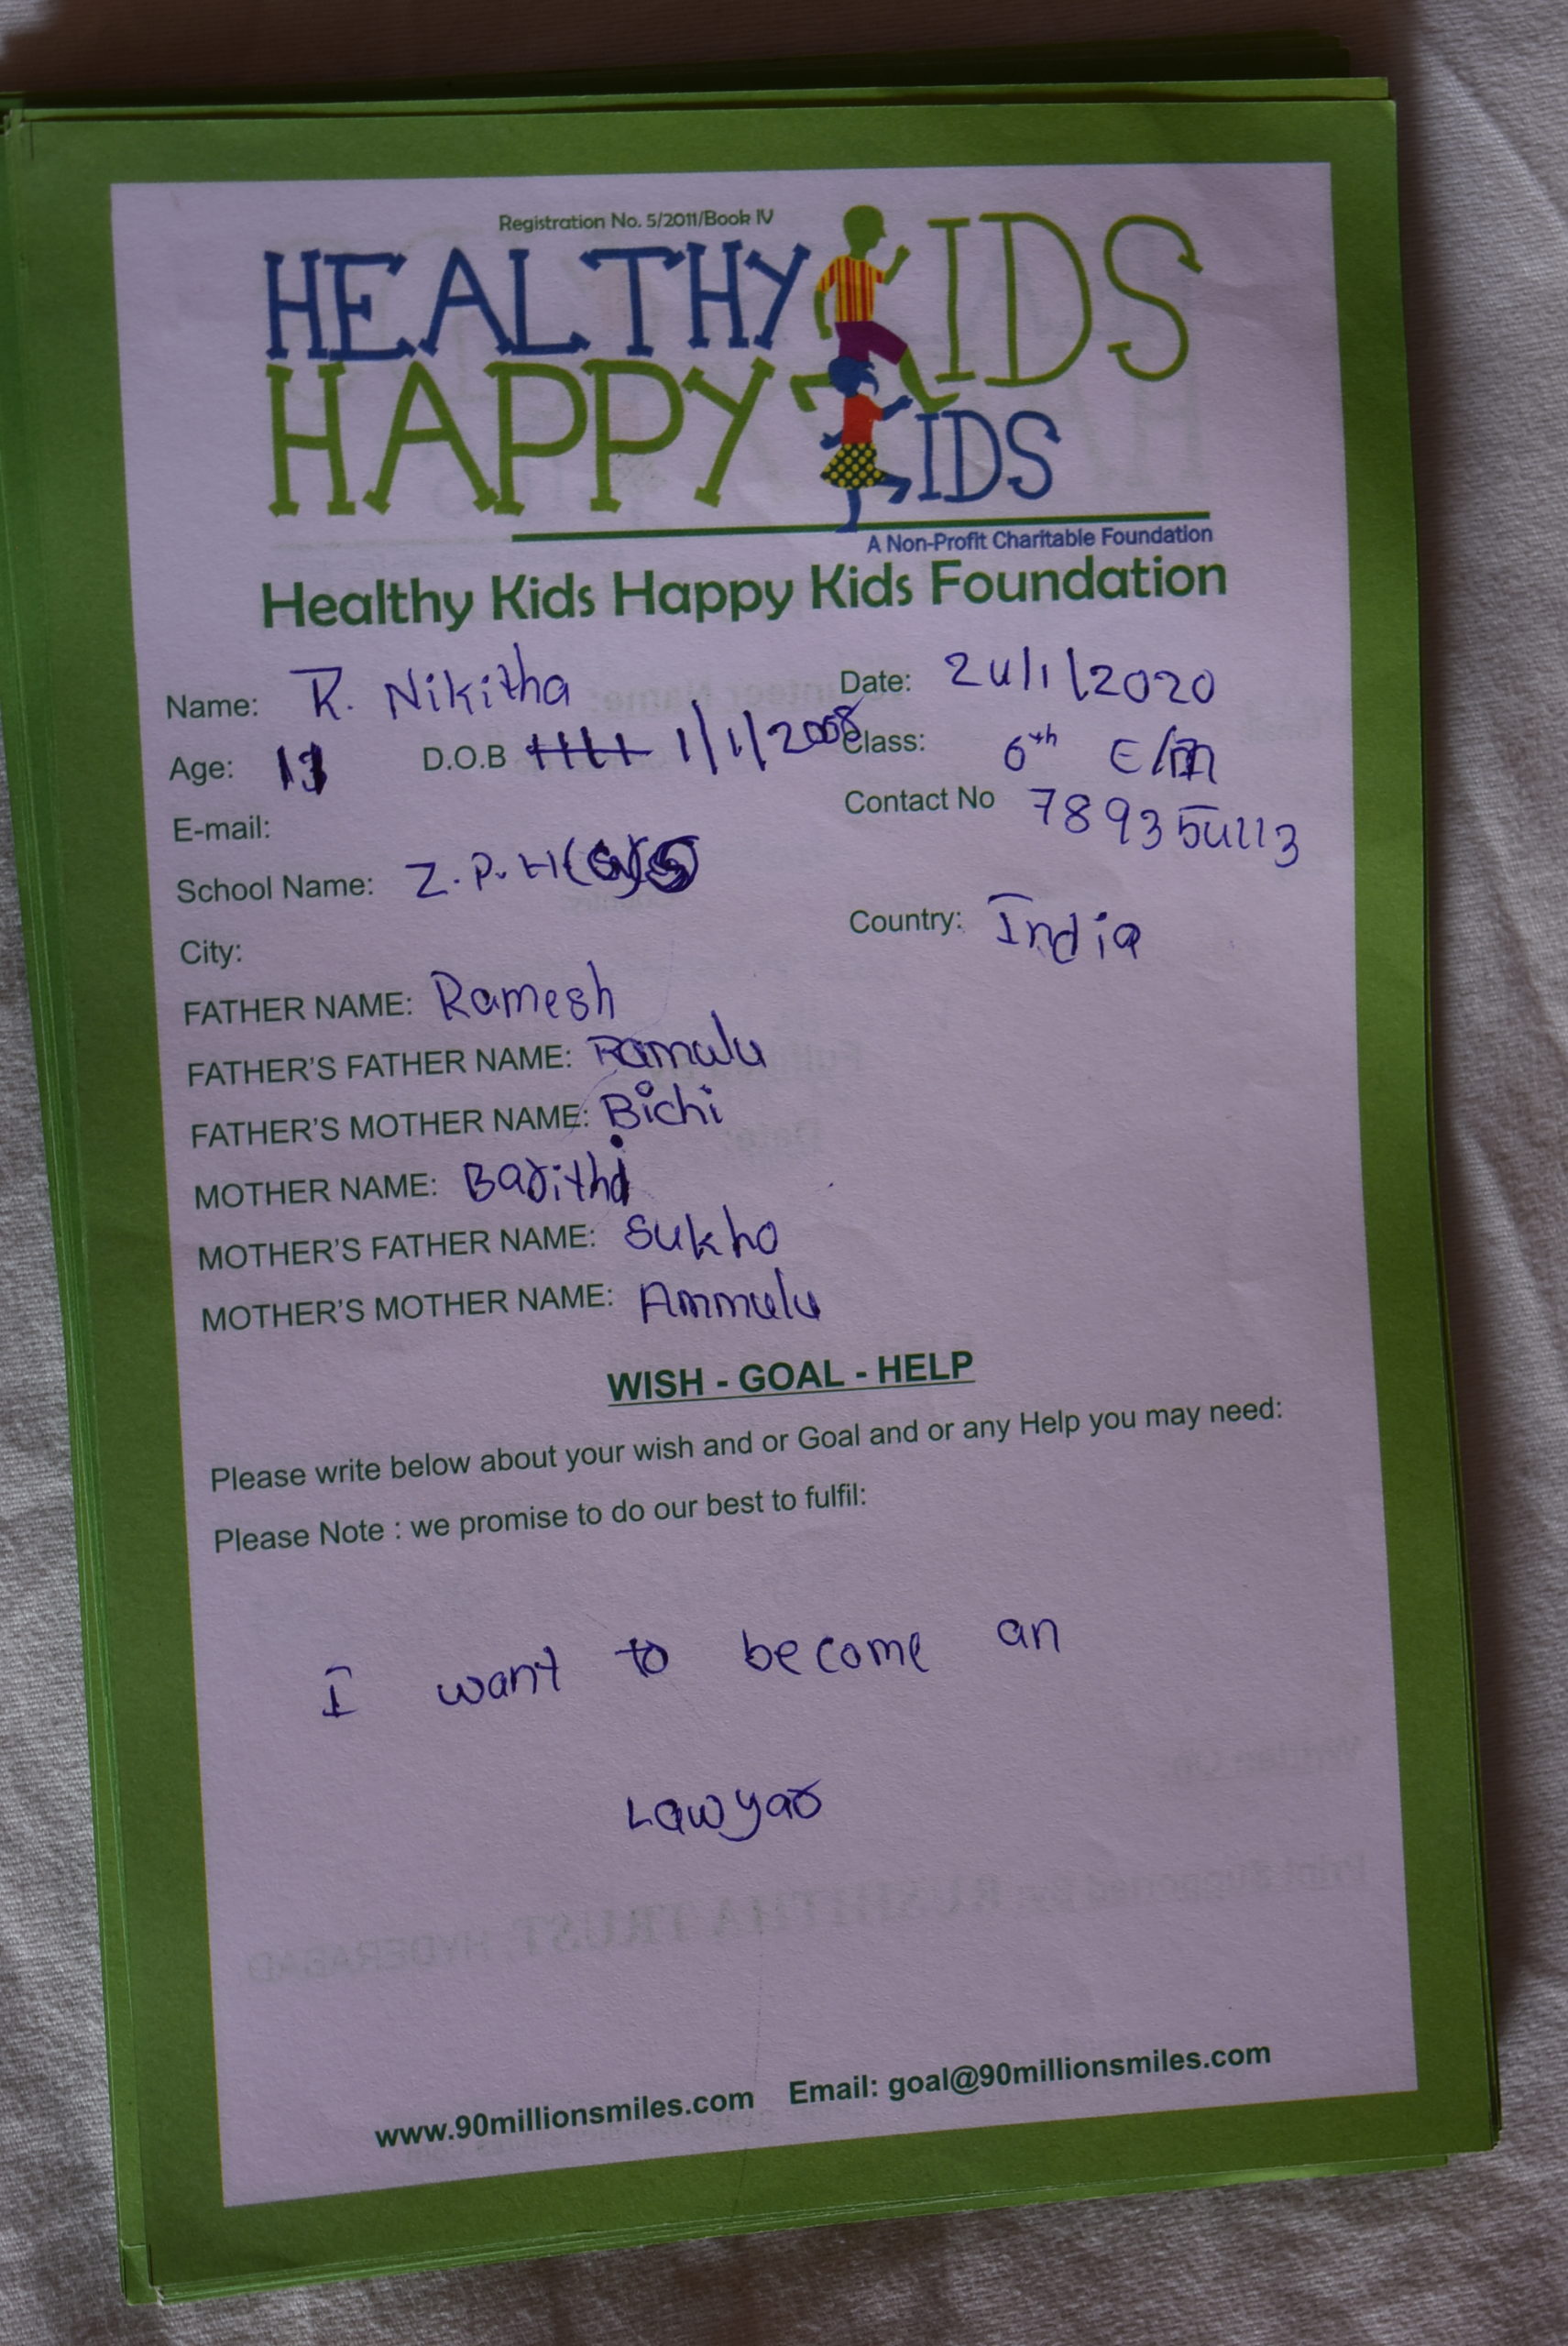 Registration No. 5/2011/Book IV
HEALTHY KIDS
HAPPY KIDS
A Non-Profit Charitable Foundation
Healthy Kids Happy Kids Foundation
Name: R. Nikitha Date: 24/1/2020
Age: D.O.B 1/1/2008 Class: 6th E/m
E-mail: Contact No 7893504113
School Name: Z.P.H(G)S
City: Country: India
FATHER NAME: Ramesh
FATHER'S FATHER NAME: Ramulu
FATHER'S MOTHER NAME: Bichi
MOTHER NAME:
MOTHER'S FATHER NAME: Sukho
MOTHER'S MOTHER NAME: Ammulu
WISH - GOAL - HELP
Please write below about your wish and or Goal and or any Help you may need:
Please Note : we promise to do our best to fulfil:
I want to become an
Lawyar
www.90millionsmiles.com Email: goal@90millionsmiles.com